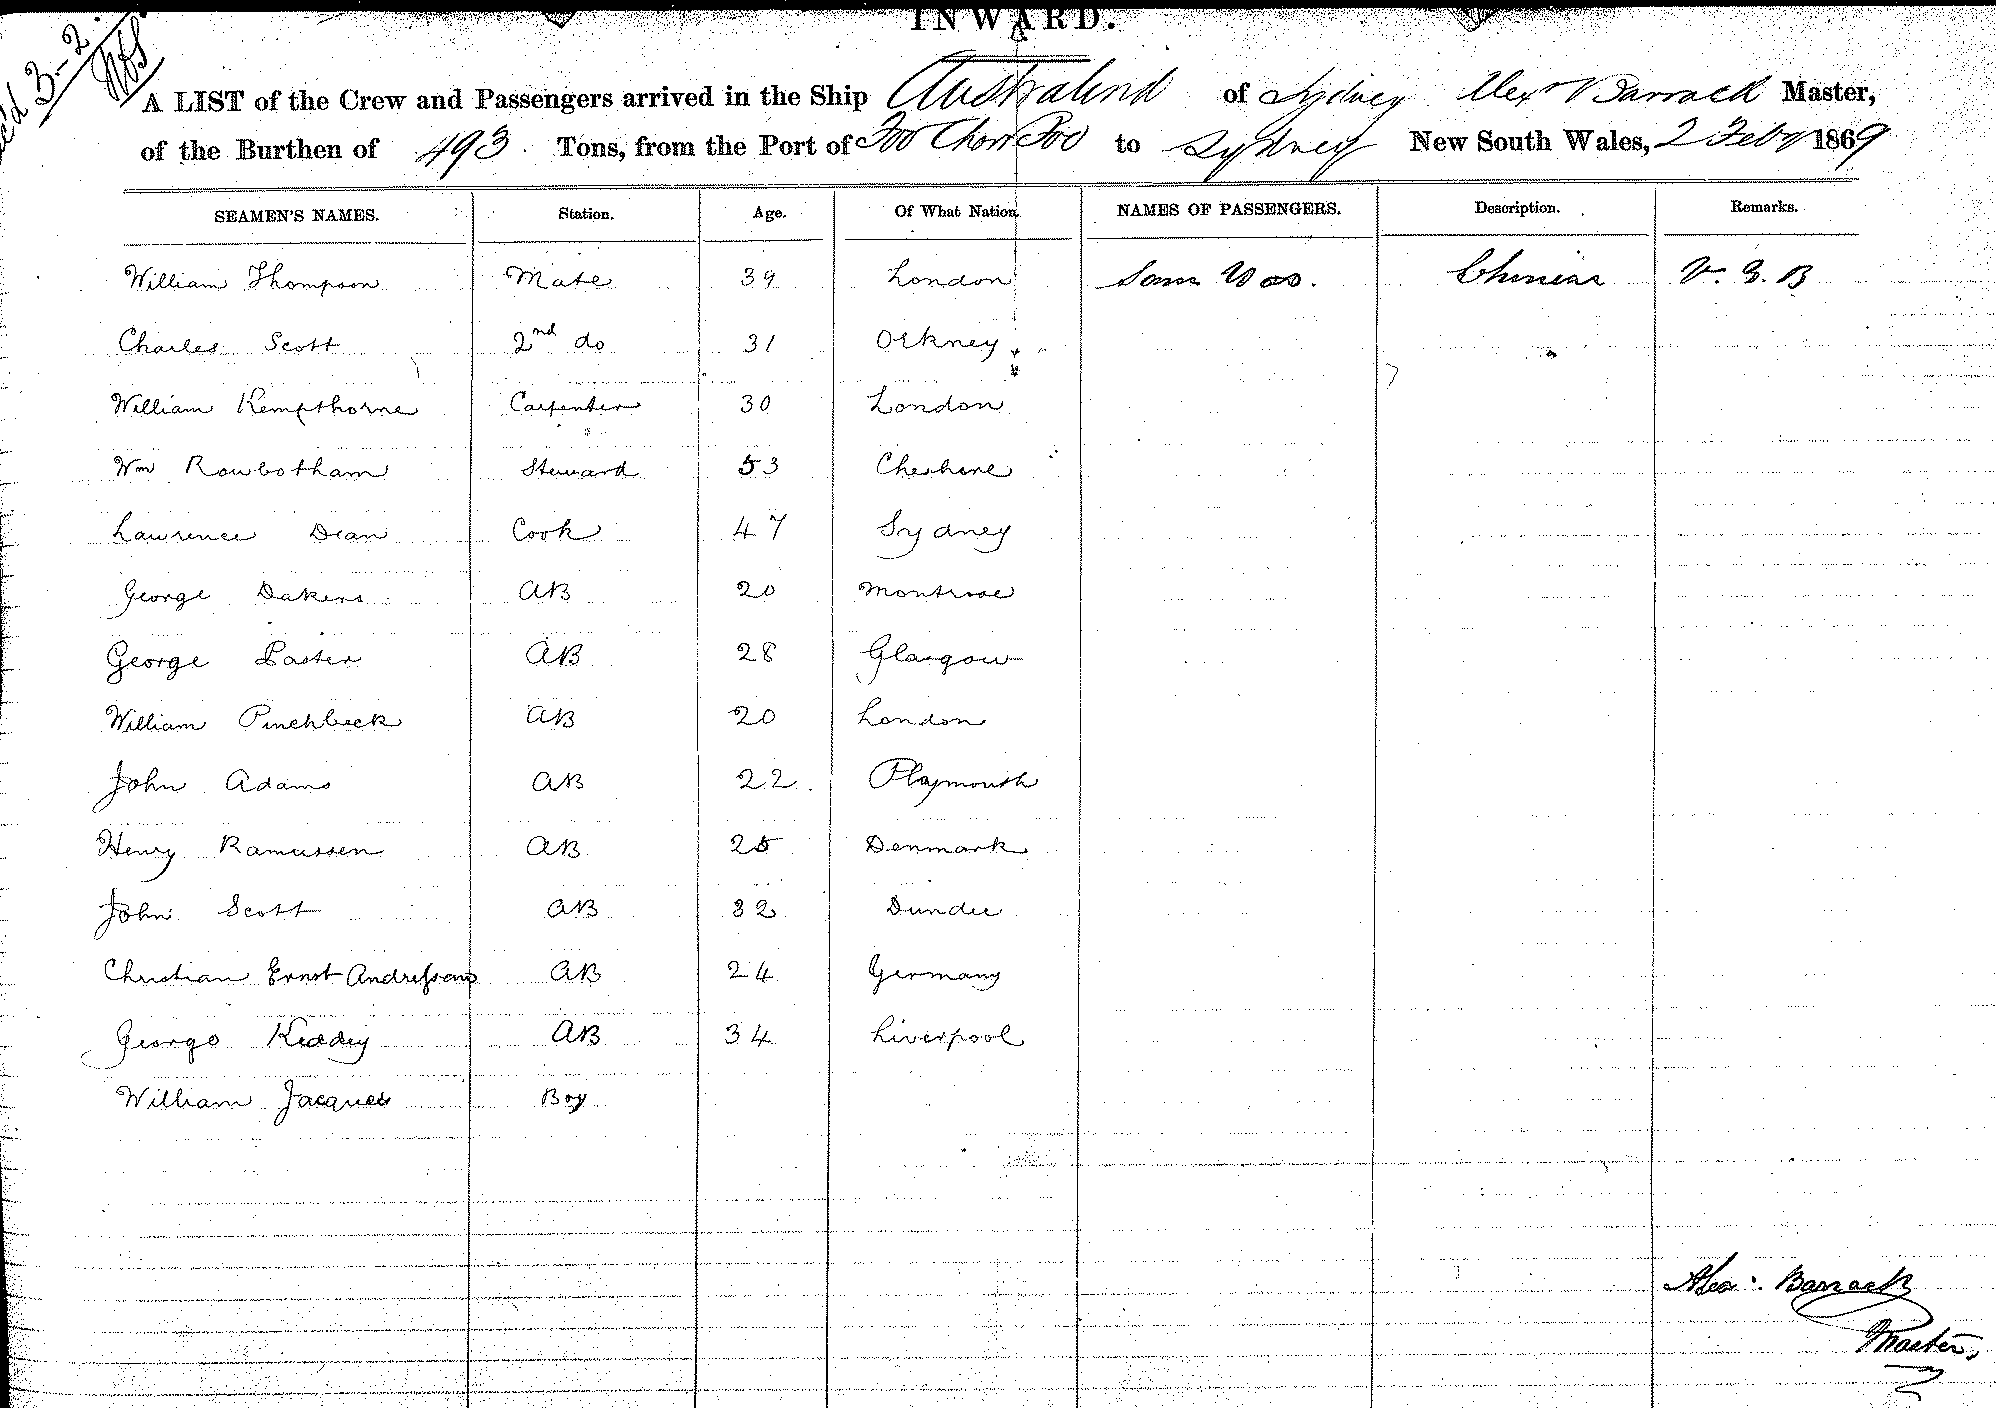 INWARD.
3-2
A LIST of the Crew and Passengers arrived in the Ship Australind of Sydney Alexr Barrack Master,
of the Burthen of 493 Tons, from the Port of Foo Chow Foo to Sydney New South Wales, 2 Feby 1869
SEAMEN'S NAMES. Station. Age. Of What Nation. NAMES OF PASSENGERS. Description. Remarks.
William Thompson Mate 39 London Sam Woo. Chinese V. G. B
Charles Scott 2nd do 31 Orkney
William Kempthorne Carpenter 30 London
Wm Rowbotham Steward 53 Cheshire
Lawrence Dean Cook 47 Sydney
George Dakers AB 20 Montrose
George Paster AB 28 Glasgow
William Pinchbeck AB 20 London
John Adams AB 22 Playmouth
Henry Ramussen AB 25 Denmark
John Scott AB 32 Dundee
Christian Ernst Andressen AB 24 Germany
George Keddey AB 34 Liverpool
William Jacques Boy
Alexr. Barrack
Master,